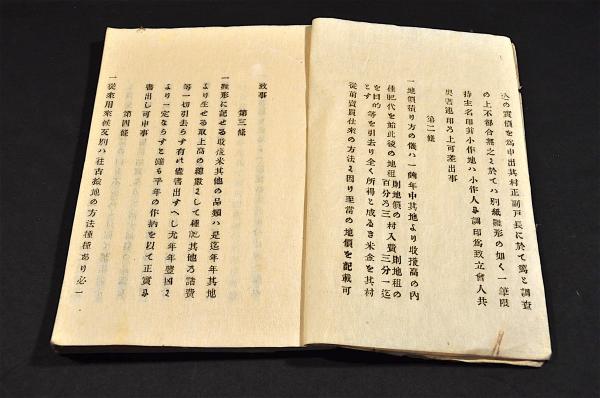 込の實價を爲申出其村正副戸長に於て篤と調査
の上不都合無之に於てハ別紙雛形の如く一筆限
持主名印并小作地ハ小作人も調印爲致立會人共
奥書連印の上可差出事
第二條
一地價積り方の儀ハ一ヶ年中其地より收獲高の內
種肥代を始此後の地租 則地價の百分の三 村入費 則地租の三分一迄
を目的とす 等を引去り全く所得と成るき米金を其村
從前賣買仕來の方法に因り至當の地價を記載可
致事
第三條
一雛形に記せる收獲米其他の品類ハ是迄年年其地
より生せる取上高の總數にして種肥其他の諸費
等一切引去らす有儘書出すへし尤年年豐凶に
より一定ならすと雖も平年の作柄を以て正實に
書出し可申事
第四條
一從來用來候反別ハ往古檢地の方法種種あり必一